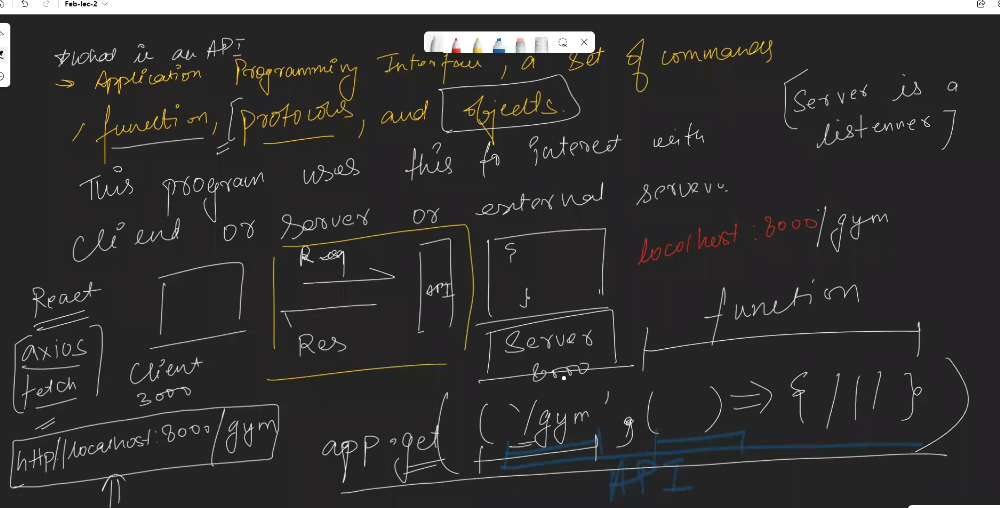 Feb-lec-2
*What is an API
→ Application Programming Interface, a set of commands
, function, [protocols, and objects.
[Server is a
listenner]
This program uses this to interect with
cliend or server or external server.
localhost:8000/gym
React
axios
fetch
Client
3000
Req
Res
API
{
}
Server
8000
function
http//localhost:8000/gym
app.get( ('/gym', ( ) => { /// } )
API